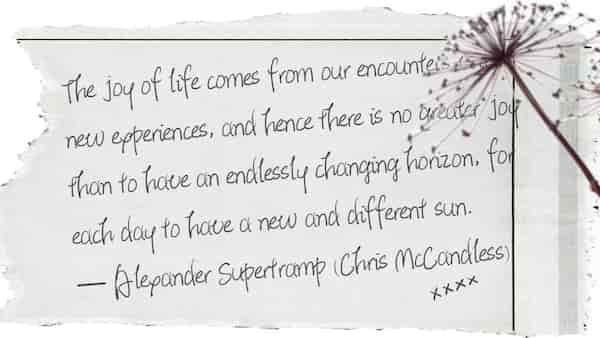 The joy of life comes from our encounters
new experiences, and hence there is no greater joy
than to have an endlessly changing horizon, for
each day to have a new and different sun.
— Alexander Supertramp (Chris McCandless)
xxxx